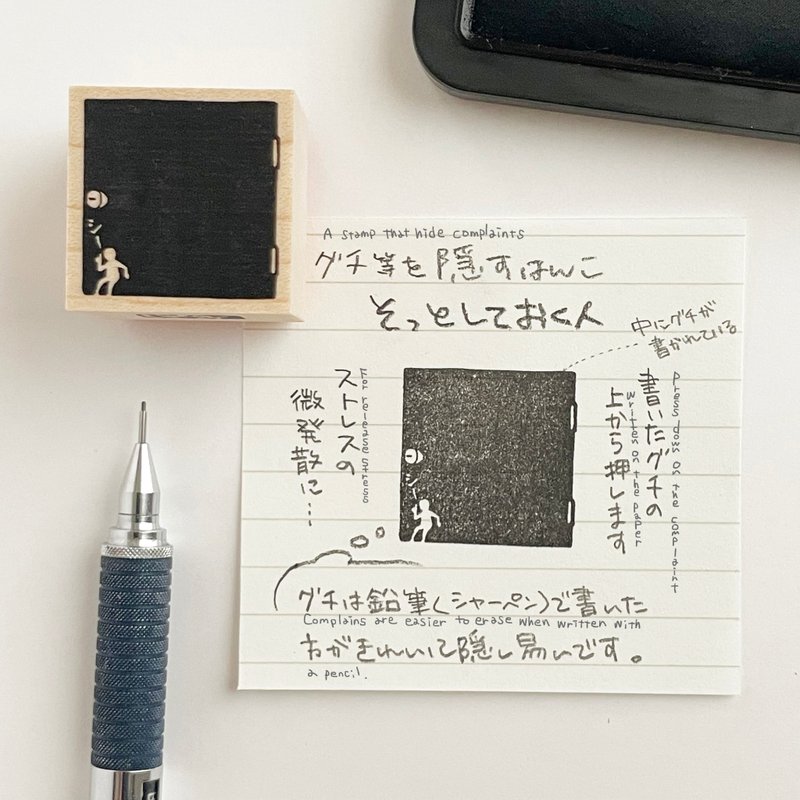 A stamp that hide complaints
グチ等を隠すはんこ
そっとしておく人
中にグチが
書かれている
Press down on the complaint
書いたグチの
written on the paper
上から押します
For release stress
ストレスの
微発散に…
シー
シー
グチは鉛筆(シャーペン)で書いた
Complains are easier to erase when written with
方がきれいに隠し易いです。
a pencil.